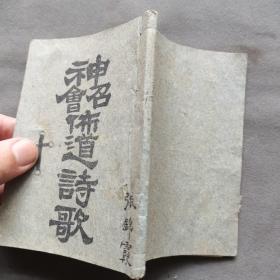 神召會佈道詩歌
張錦